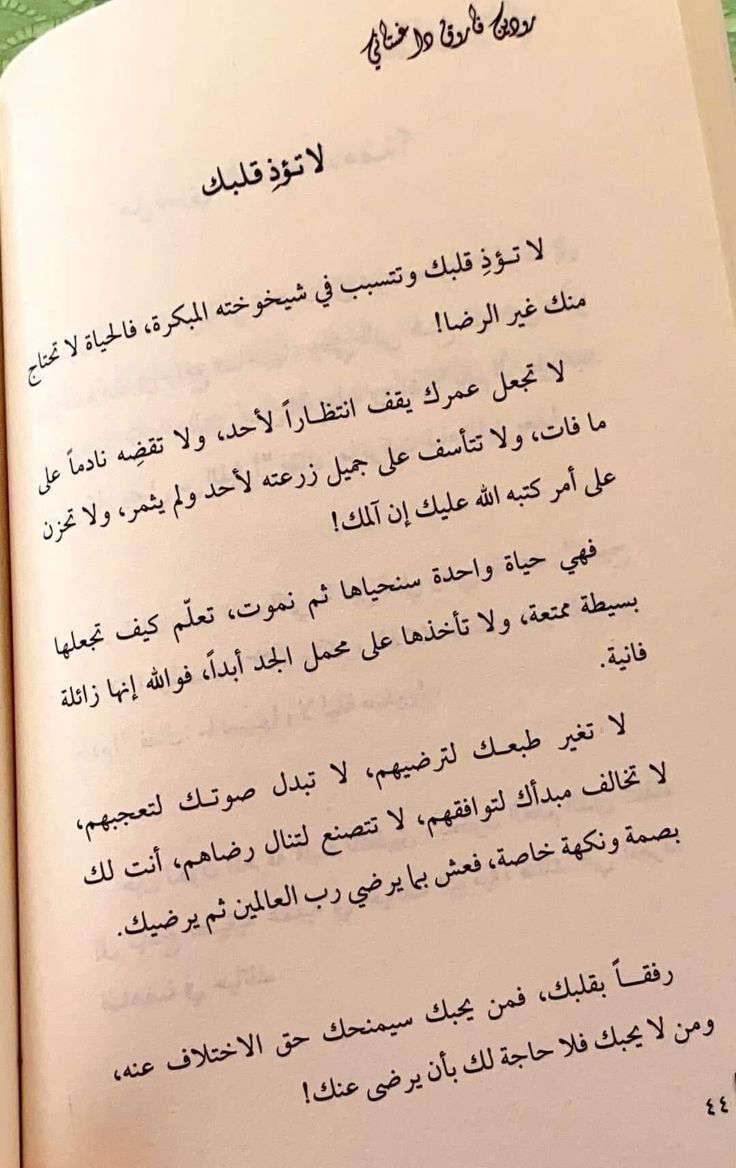 رودين فاروق داغستاني
لا تؤذِ قلبك
لا تـؤذِ قلبك وتتسبب في شيخوخته المبكرة، فالحياة لا تحتاج
منك غير الرضا!
لا تجعل عمرك يقف انتظـاراً لأحد، ولا تقضِه نادماً على
ما فات، ولا تتأسف على جميل زرعته لأحد ولم يثمر، ولا تحزن
على أمر كتبه الله عليك إن آلمك!
فهي حياة واحدة سنحياها ثم نموت، تعلّم كيف تجعلها
بسيطة ممتعة، ولا تأخذها على محمل الجد أبداً، فوالله إنها زائلة
فانية.
لا تغير طبعـك لترضيهم، لا تبدل صوتـك لتعجبهم،
لا تخالف مبدأك لتوافقهم، لا تتصنع لتنال رضاهم، أنت لك
بصمة ونكهة خاصة، فعش بما يرضي رب العالمين ثم يرضيك.
رفقـــاً بقلبك، فمن يحبك سيمنحك حق الاختلاف عنه،
ومن لا يحبك فلا حاجة لك بأن يرضى عنك!
٤٤